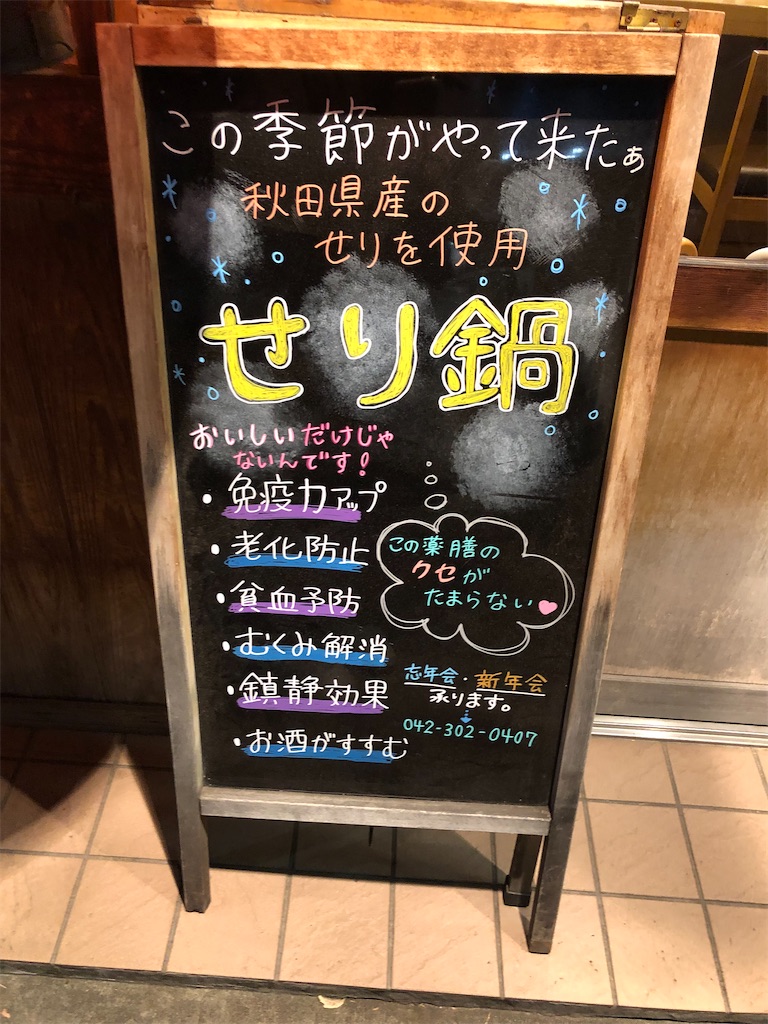 この季節がやって来たぁ
秋田県産の
せりを使用
せり鍋
おいしいだけじゃ
ないんです!
・免疫力アップ
・老化防止
・貧血予防
・むくみ解消
・鎮静効果
・お酒がすすむ
この薬膳の
クセが
たまらない
忘年会・新年会
承ります。
042-302-0407